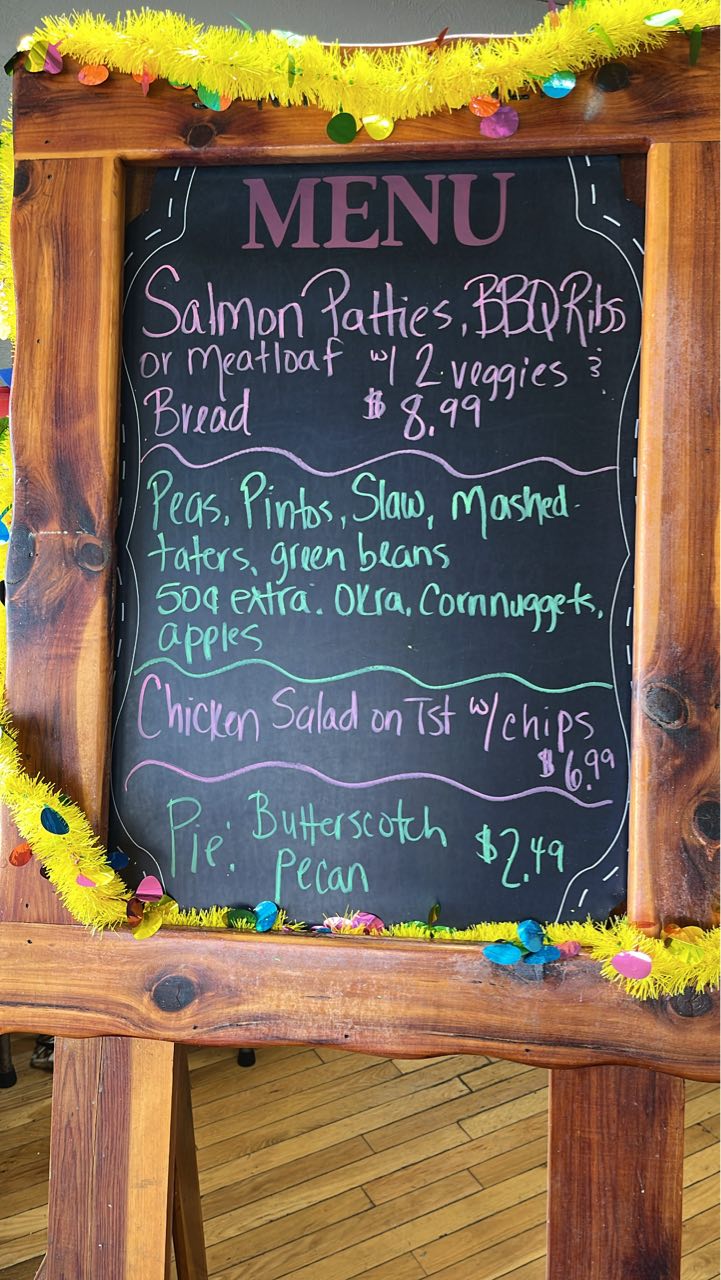 MENU
Salmon Patties, BBQ Ribs
or meatloaf w/ 2 veggies &
Bread $ 8.99
Peas, Pintos, Slaw, Mashed-
taters, green beans
50¢ extra: Okra, Cornnuggets,
apples
Chicken Salad on Tst w/ chips
$6.99
Pie: Butterscotch $2.49
pecan